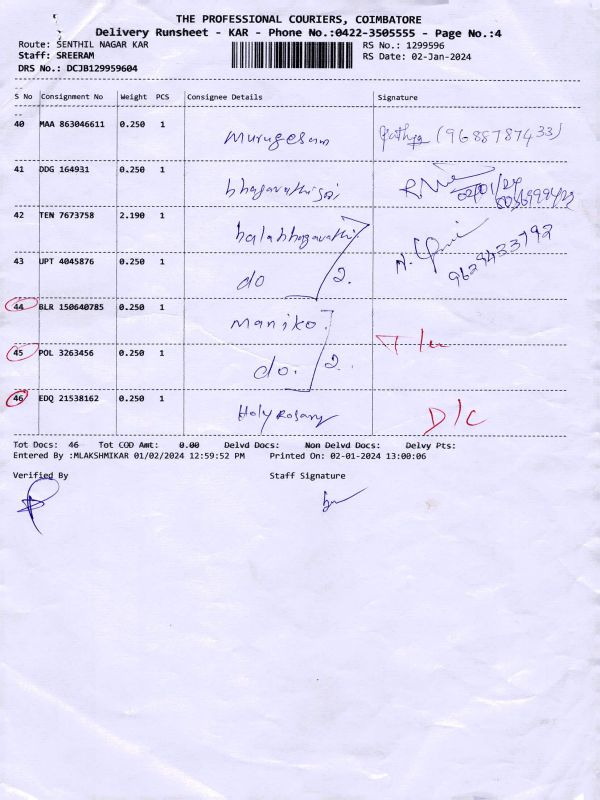 THE PROFESSIONAL COURIERS, COIMBATORE
Delivery Runsheet - KAR - Phone No.:0422-3505555 - Page No.:4
Route: SENTHIL NAGAR KAR RS No.: 1299596
Staff: SREERAM RS Date: 02-Jan-2024
DRS No.: DCJB129959604
S No Consignment No Weight PCS Consignee Details Signature
40 MAA 863046611 0.250 1 Murugesan (9688787433)
41 DDG 164931 0.250 1 bhagavathi 02/01/24
42 TEN 7673758 2.190 1 balabhagavathi
43 UPT 4045876 0.250 1 do 2. 9629433792
44 BLR 150640785 0.250 1 maniko.
45 POL 3263456 0.250 1 do. 2.
46 EDQ 21538162 0.250 1 Holy Rosary D/C
Tot Docs: 46 Tot COD Amt: 0.00 Delvd Docs: Non Delvd Docs: Delvy Pts:
Entered By :MLAKSHMIKAR 01/02/2024 12:59:52 PM Printed On: 02-01-2024 13:00:06
Verified By Staff Signature